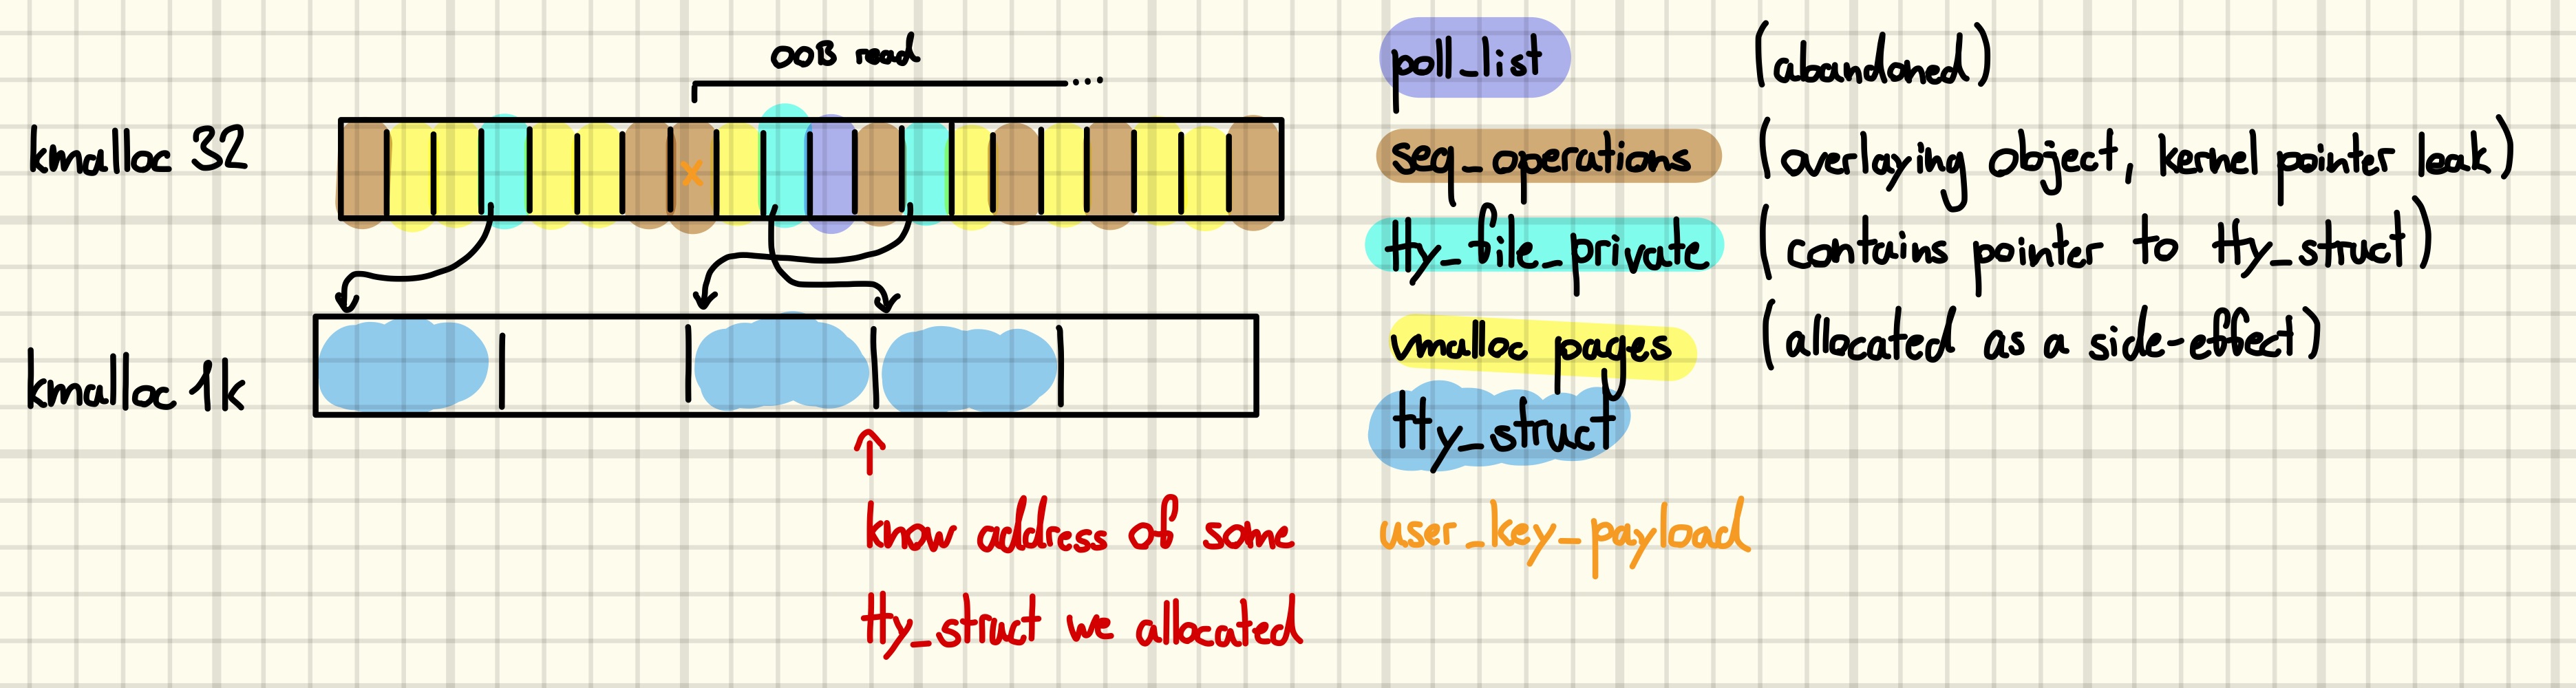 OOB read
kmalloc 32
x
kmalloc 1k
know address of some
tty_struct we allocated
poll_list (abandoned)
seq_operations (overlaying object, kernel pointer leak)
tty_file_private (contains pointer to tty_struct)
vmalloc pages (allocated as a side-effect)
tty_struct
user_key_payload